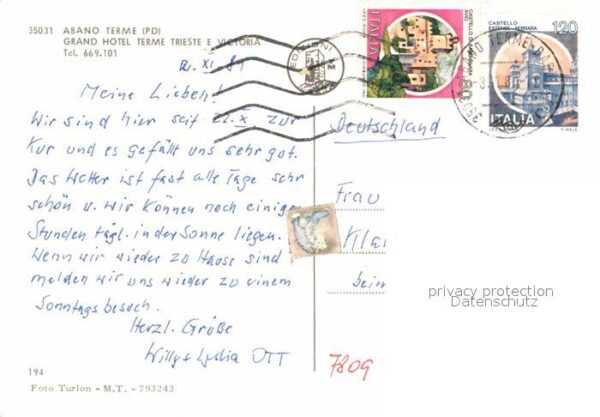 35031 ABANO TERME (PD)
GRAND HOTEL TERME TRIESTE E VICTORIA
Tel. 669.101
2. XI. 81
Meine Lieben!
Wir sind hier seit 22.X zur
Kur und es gefällt uns sehr gut.
Das Wetter ist fast alle Tage sehr
schön u. wir können noch einige
Stunden tägl. in der Sonne liegen.
Wenn wir wieder zu Hause sind
melden wir uns wieder zu einem
Sonntagsbesuch.
Herzl. Grüße
Willy + Lydia OTT
194
Foto Turlon - M.T. - 793243
EDIZIONI
ITALIA
80
CASTELLO
120
ITALIA
ABANO TERME
Deutschland
Frau
Kla
beim
7809
privacy protection
Datenschutz